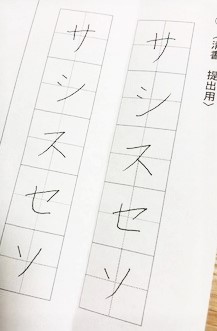 〈清書 提出用〉
サシスセソ
サシスセソ